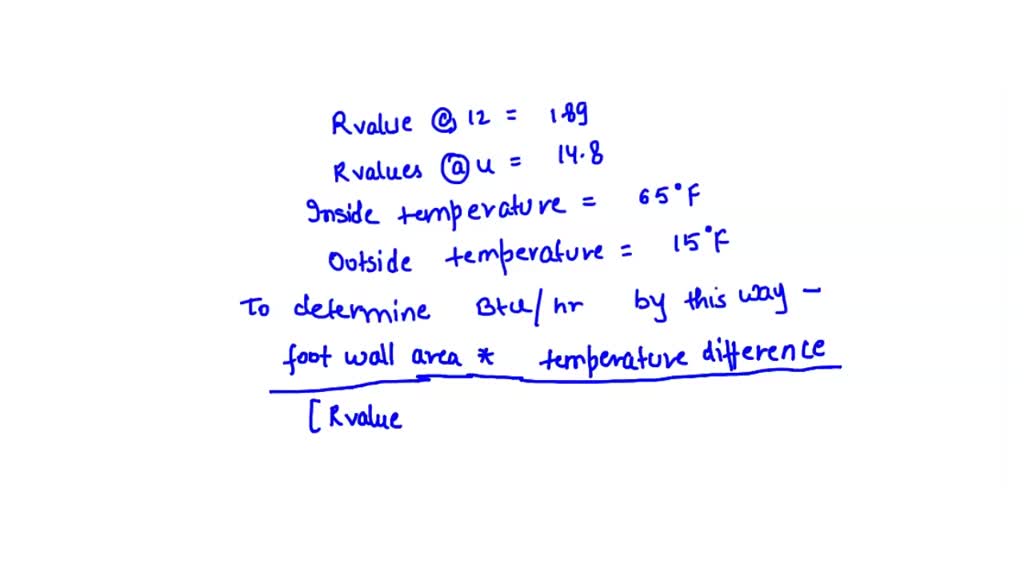 Rvalue @ 12 = 1.89
Rvalues @ u = 14.8
Inside temperature = 65°F
Outside temperature = 15°F
To determine Btu/hr by this way -
foot wall area * temperature difference
[Rvalue